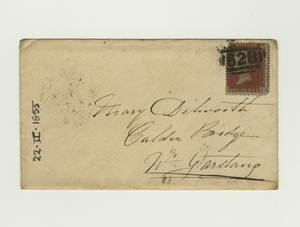 628
Mary Dilworth
Calder Bridge
Nr Garstang
22·II·1855